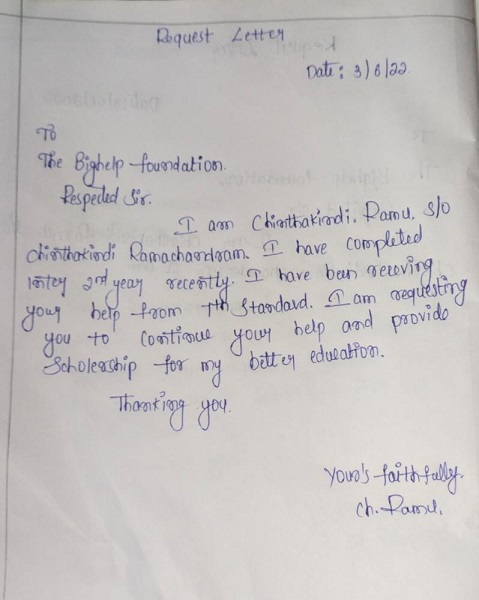 Request Letter
Date: 3/6/22.
To
The Bighelp foundation.
Respected Sir.
I am Chinthakindi. Ramu. S/o
Chinthakindi Ramachandram. I have completed
inter 2nd year recently. I have been receving
your help from 7th Standard. I am requesting
you to continue your help and provide
Scholership for my better education.
Thanking you.
Your's faithfully.
Ch. Ramu.